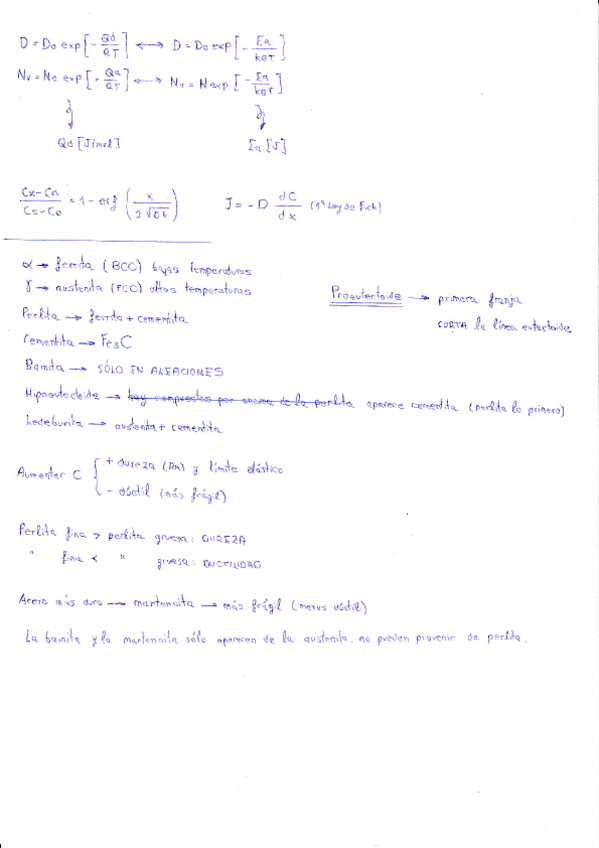 D = D₀ exp[-Qd/RT] ⟷ D = D₀ exp[-Ea/kBT]
Nv = N₀ exp[-Qa/RT] ⟷ Nv = N exp[-Ea/kBT]
Qd [J/mol] Ea [J]
Cx-C₀/Cs-C₀ = 1 - erf(x/2√Dt) J = -D dC/dx (1ª Ley de Fick)
α → ferrita (BCC) bajas temperaturas
γ → austenita (FCC) altas temperaturas
Proeutectoide → primera franja
CORTA la línea eutectoide
Perlita → ferrita + cementita
Cementita → Fe₃C
Bainita → SÓLO EN ALEACIONES
Hipoeutectoide → hay compuestos por encima de la perlita aparece cementita (perlita lo primero)
Ledeburita → austenita + cementita
Aumentar C { + dureza (Rm) y límite elástico
- dúctil (más frágil)
Perlita fina > perlita gruesa: DUREZA
" fina < " gruesa: DUCTILIDAD
Acero más duro → martensita → más frágil (menos dúctil)
La bainita y la martensita sólo aparecen de la austenita, no pueden provenir de perlita.